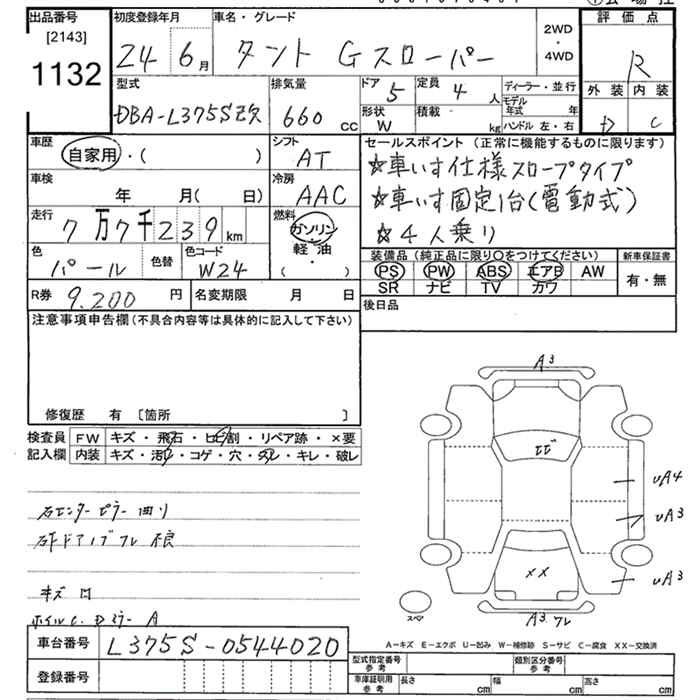 出品番号 初度登録年月 車名・グレード 評価点
[2143]
1132
24 6月 タント Gスローパー 2WD・4WD R
型式 排気量 ドア 定員 ディーラー・並行 外装 内装
DBA-L375S改 660cc 5 4人 モデル年式 年 D C
形状 積載 ハンドル 左・右
W kg
車歴 シフト セールスポイント (正常に機能するものに限ります)
自家用・( ) AT ☆車いす仕様スロープタイプ
車検 冷房 ☆車いす固定1台(電動式)
年 月( 日) AAC ☆4人乗り
走行 燃料
7万7千239km ガソリン・軽油・( )
色 色替 色コード 装備品 (純正品に限り○をつけてください) 新車保証書
パール W24 PS PW ABS エアB AW 有・無
SR ナビ TV カワ
R券 9,200円 名変期限 月 日 後日品
注意事項申告欄 (不具合内容等は具体的に記入して下さい)
修復歴 有 [箇所 ]
検査員 FW キズ・飛石・ヒビ割・リペア跡・×要
記入欄 内装 キズ・汚れ・コゲ・穴・スレ・キレ・破レ
A3
ヒビ
UA4
UA3
UA3
XX
スペア
A3 ワレ
右センターピラー曲り
キズ凹
ホイルC. Dミラー A
A-キズ E-エクボ U-凹み W-補修跡 S-サビ C-腐食 XX-交換済
車台番号 L375S-0544020
登録番号
型式指定番号 参考 類別区分番号 参考
車庫証明用 参考 長さ cm 幅 cm 高さ cm